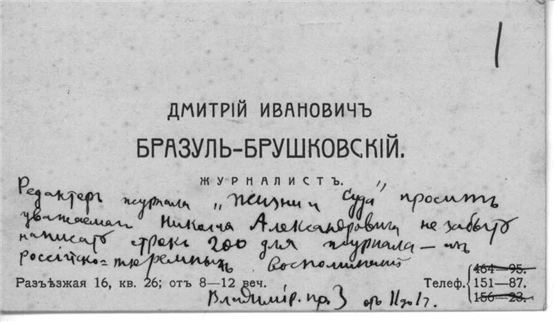 1
ДМИТРІЙ ИВАНОВИЧЪ
БРАЗУЛЬ-БРУШКОВСКІЙ.
ЖУРНАЛИСТЪ.
Редакторъ журнала „Жизнь и Судъ" проситъ
уважаемаго Николая Александровича не забыть
написать строкъ 200 для журнала — изъ
россійско-тюремныхъ воспоминаній
Разъѣзжая 16, кв. 26; отъ 8—12 веч.
Телеф.
464—95.
151—87.
156—23.
Владимір. пр. 3 отъ 11 до 1 г.